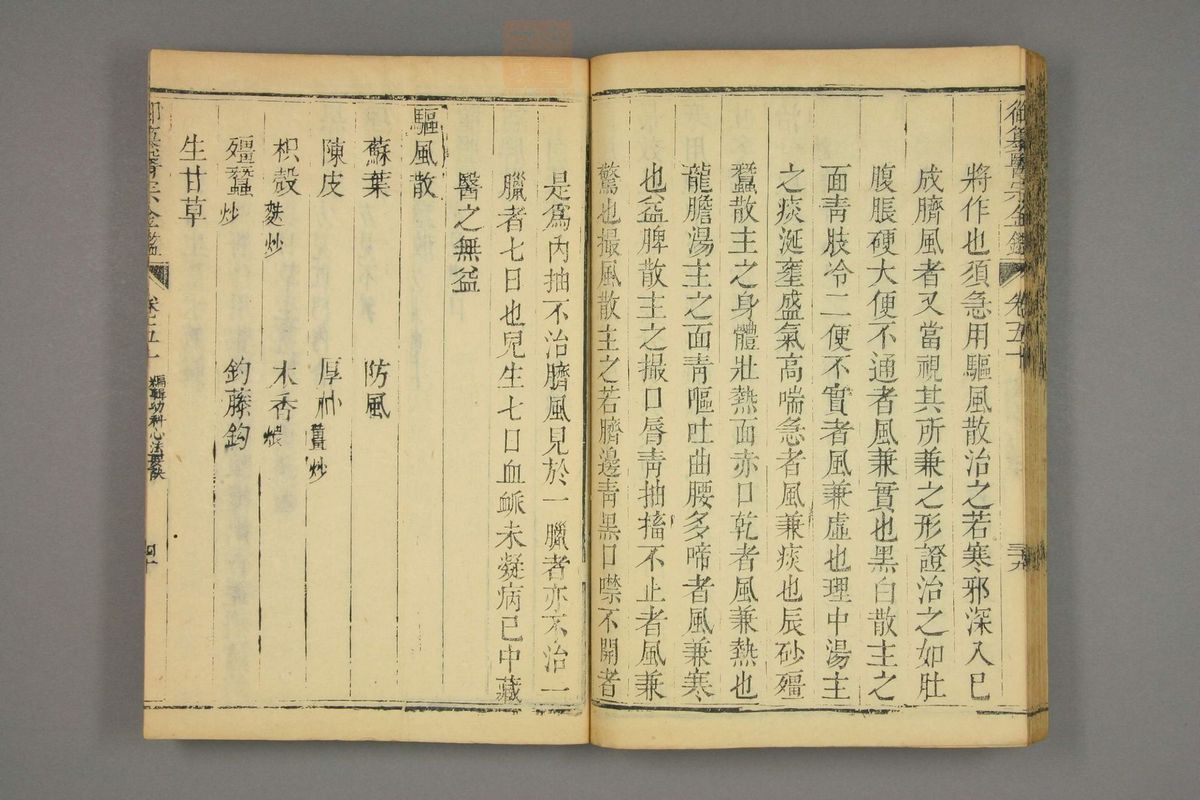 御纂醫宗金鑑 卷五十
將作也須急用驅風散治之若寒邪深入巳
成臍風者又當視其所兼之形證治之如肚
腹脹硬大便不通者風兼實也黑白散主之
面青肢冷二便不實者風兼虛也理中湯主
之痰涎壅盛氣高喘急者風兼痰也辰砂殭
蠶散主之身體壯熱面赤口乾者風兼熱也
龍膽湯主之面青嘔吐曲腰多啼者風兼寒
也益脾散主之撮口唇青抽搐不止者風兼
驚也撮風散主之若臍邊青黑口噤不開者
是為內抽不治臍風見於一臘者亦不治一
臘者七日也兒生七口血脈未凝病已中藏
醫之無益
驅風散
蘇葉 防風
陳皮 厚朴 薑炒
枳殼 麩炒 木香 煨
殭蠶 炒 鈎藤鈎
生甘草
御纂醫宗金鑑 卷五十 編輯幼科心法要訣